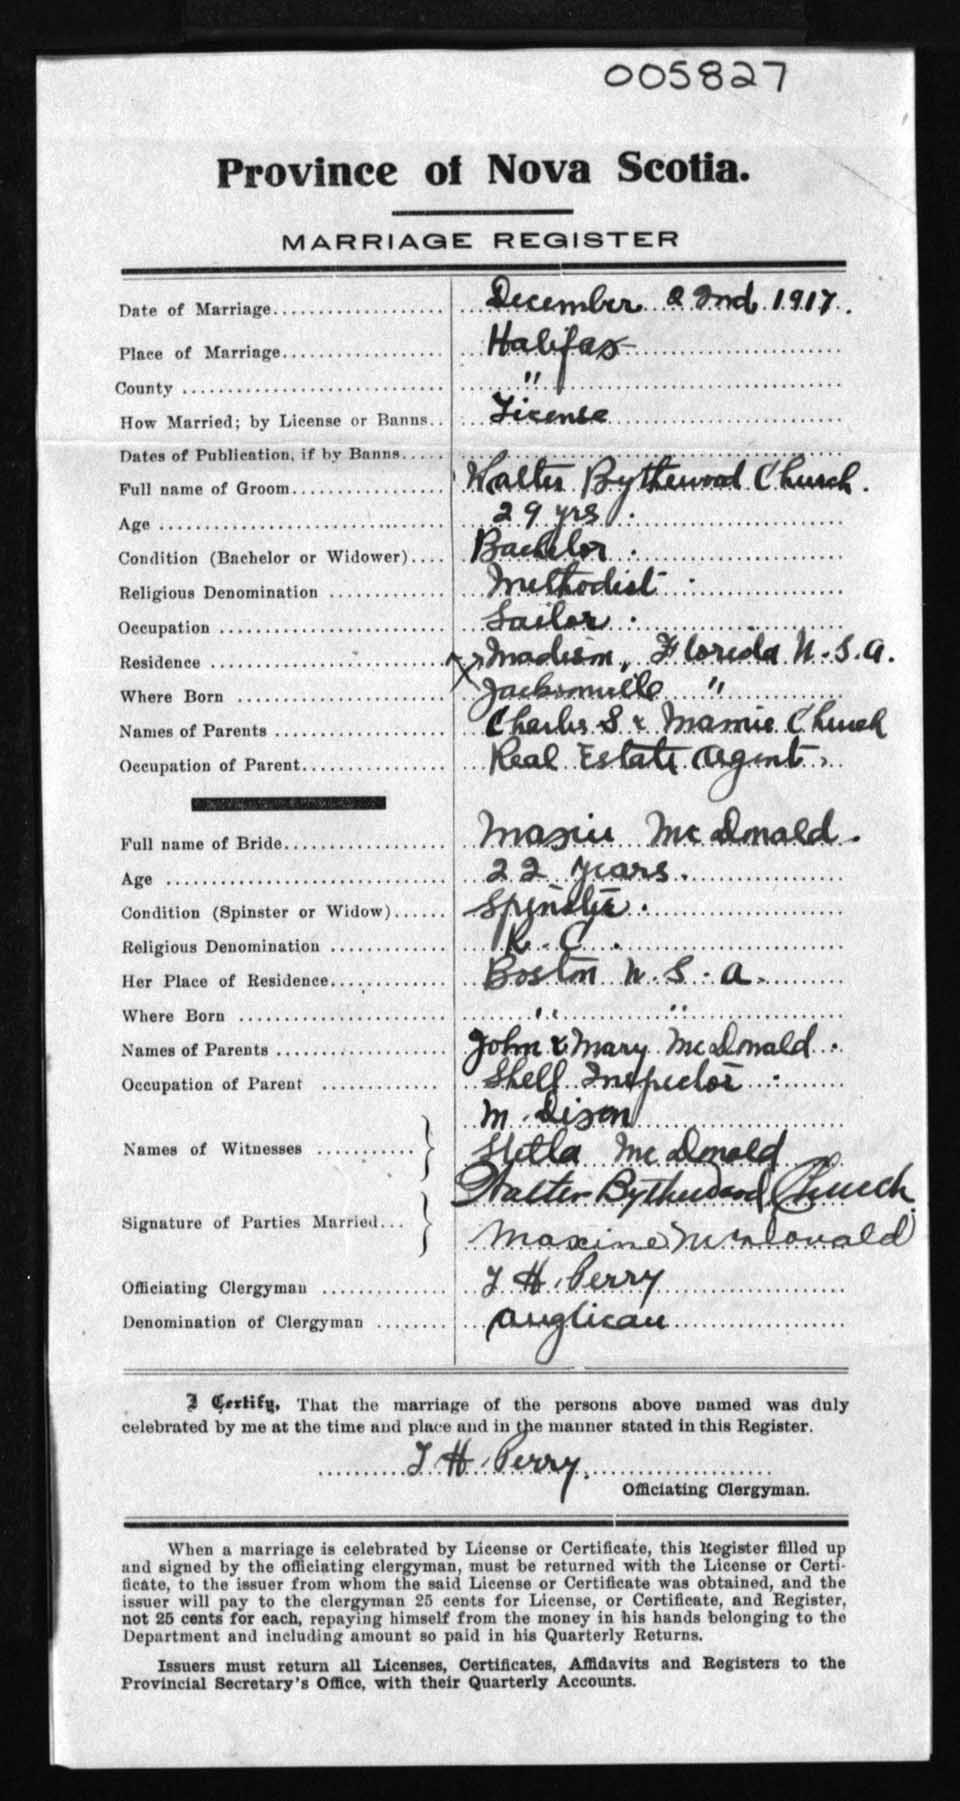 005827
Province of Nova Scotia.
MARRIAGE REGISTER
Date of Marriage.................... December 22nd 1917.
Place of Marriage.................... Halifax
County .................... "
How Married; by License or Banns.. License
Dates of Publication, if by Banns.....
Full name of Groom.................... Walter Bythewood Church.
Age .................... 29 yrs.
Condition (Bachelor or Widower).... Bachelor.
Religious Denomination .................... Methodist.
Occupation .................... Sailor.
Residence .................... Madison, Florida U.S.A.
Where Born .................... Jacksonville "
Names of Parents .................... Charles S & Mamie Church
Occupation of Parent.................... Real Estate Agent.
Full name of Bride.................... Maxine McDonald.
Age .................... 22 years.
Condition (Spinster or Widow)...... Spinster.
Religious Denomination .................... R.C.
Her Place of Residence.................... Boston U.S.A.
Where Born .................... " "
Names of Parents .................... John & Mary McDonald.
Occupation of Parent .................... Shell Inspector.
M. Dixon
Names of Witnesses ............ Stella McDonald
Walter Bythewood Church
Signature of Parties Married... Maxine McDonald
Officiating Clergyman .................... T H. Perry
Denomination of Clergyman ........ Anglican
I Certify, That the marriage of the persons above named was duly
celebrated by me at the time and place and in the manner stated in this Register.
T H. Perry.
Officiating Clergyman.
When a marriage is celebrated by License or Certificate, this Register filled up
and signed by the officiating clergyman, must be returned with the License or Certi-
ficate, to the issuer from whom the said License or Certificate was obtained, and the
issuer will pay to the clergyman 25 cents for License, or Certificate, and Register,
not 25 cents for each, repaying himself from the money in his hands belonging to the
Department and including amount so paid in his Quarterly Returns.
Issuers must return all Licenses, Certificates, Affidavits and Registers to the
Provincial Secretary's Office, with their Quarterly Accounts.